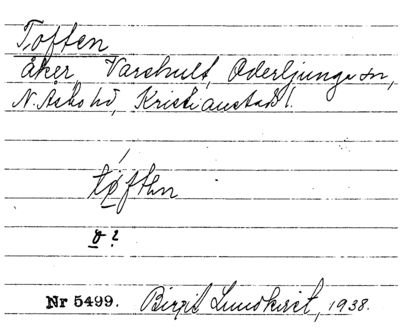 Toften
åker, Varshult, Oderljunga sn,
N. Åsbo hd, Kristianstad l.
tɷ́ften
o ?
Nr 5499. Birgit Lundkvist, 1938.